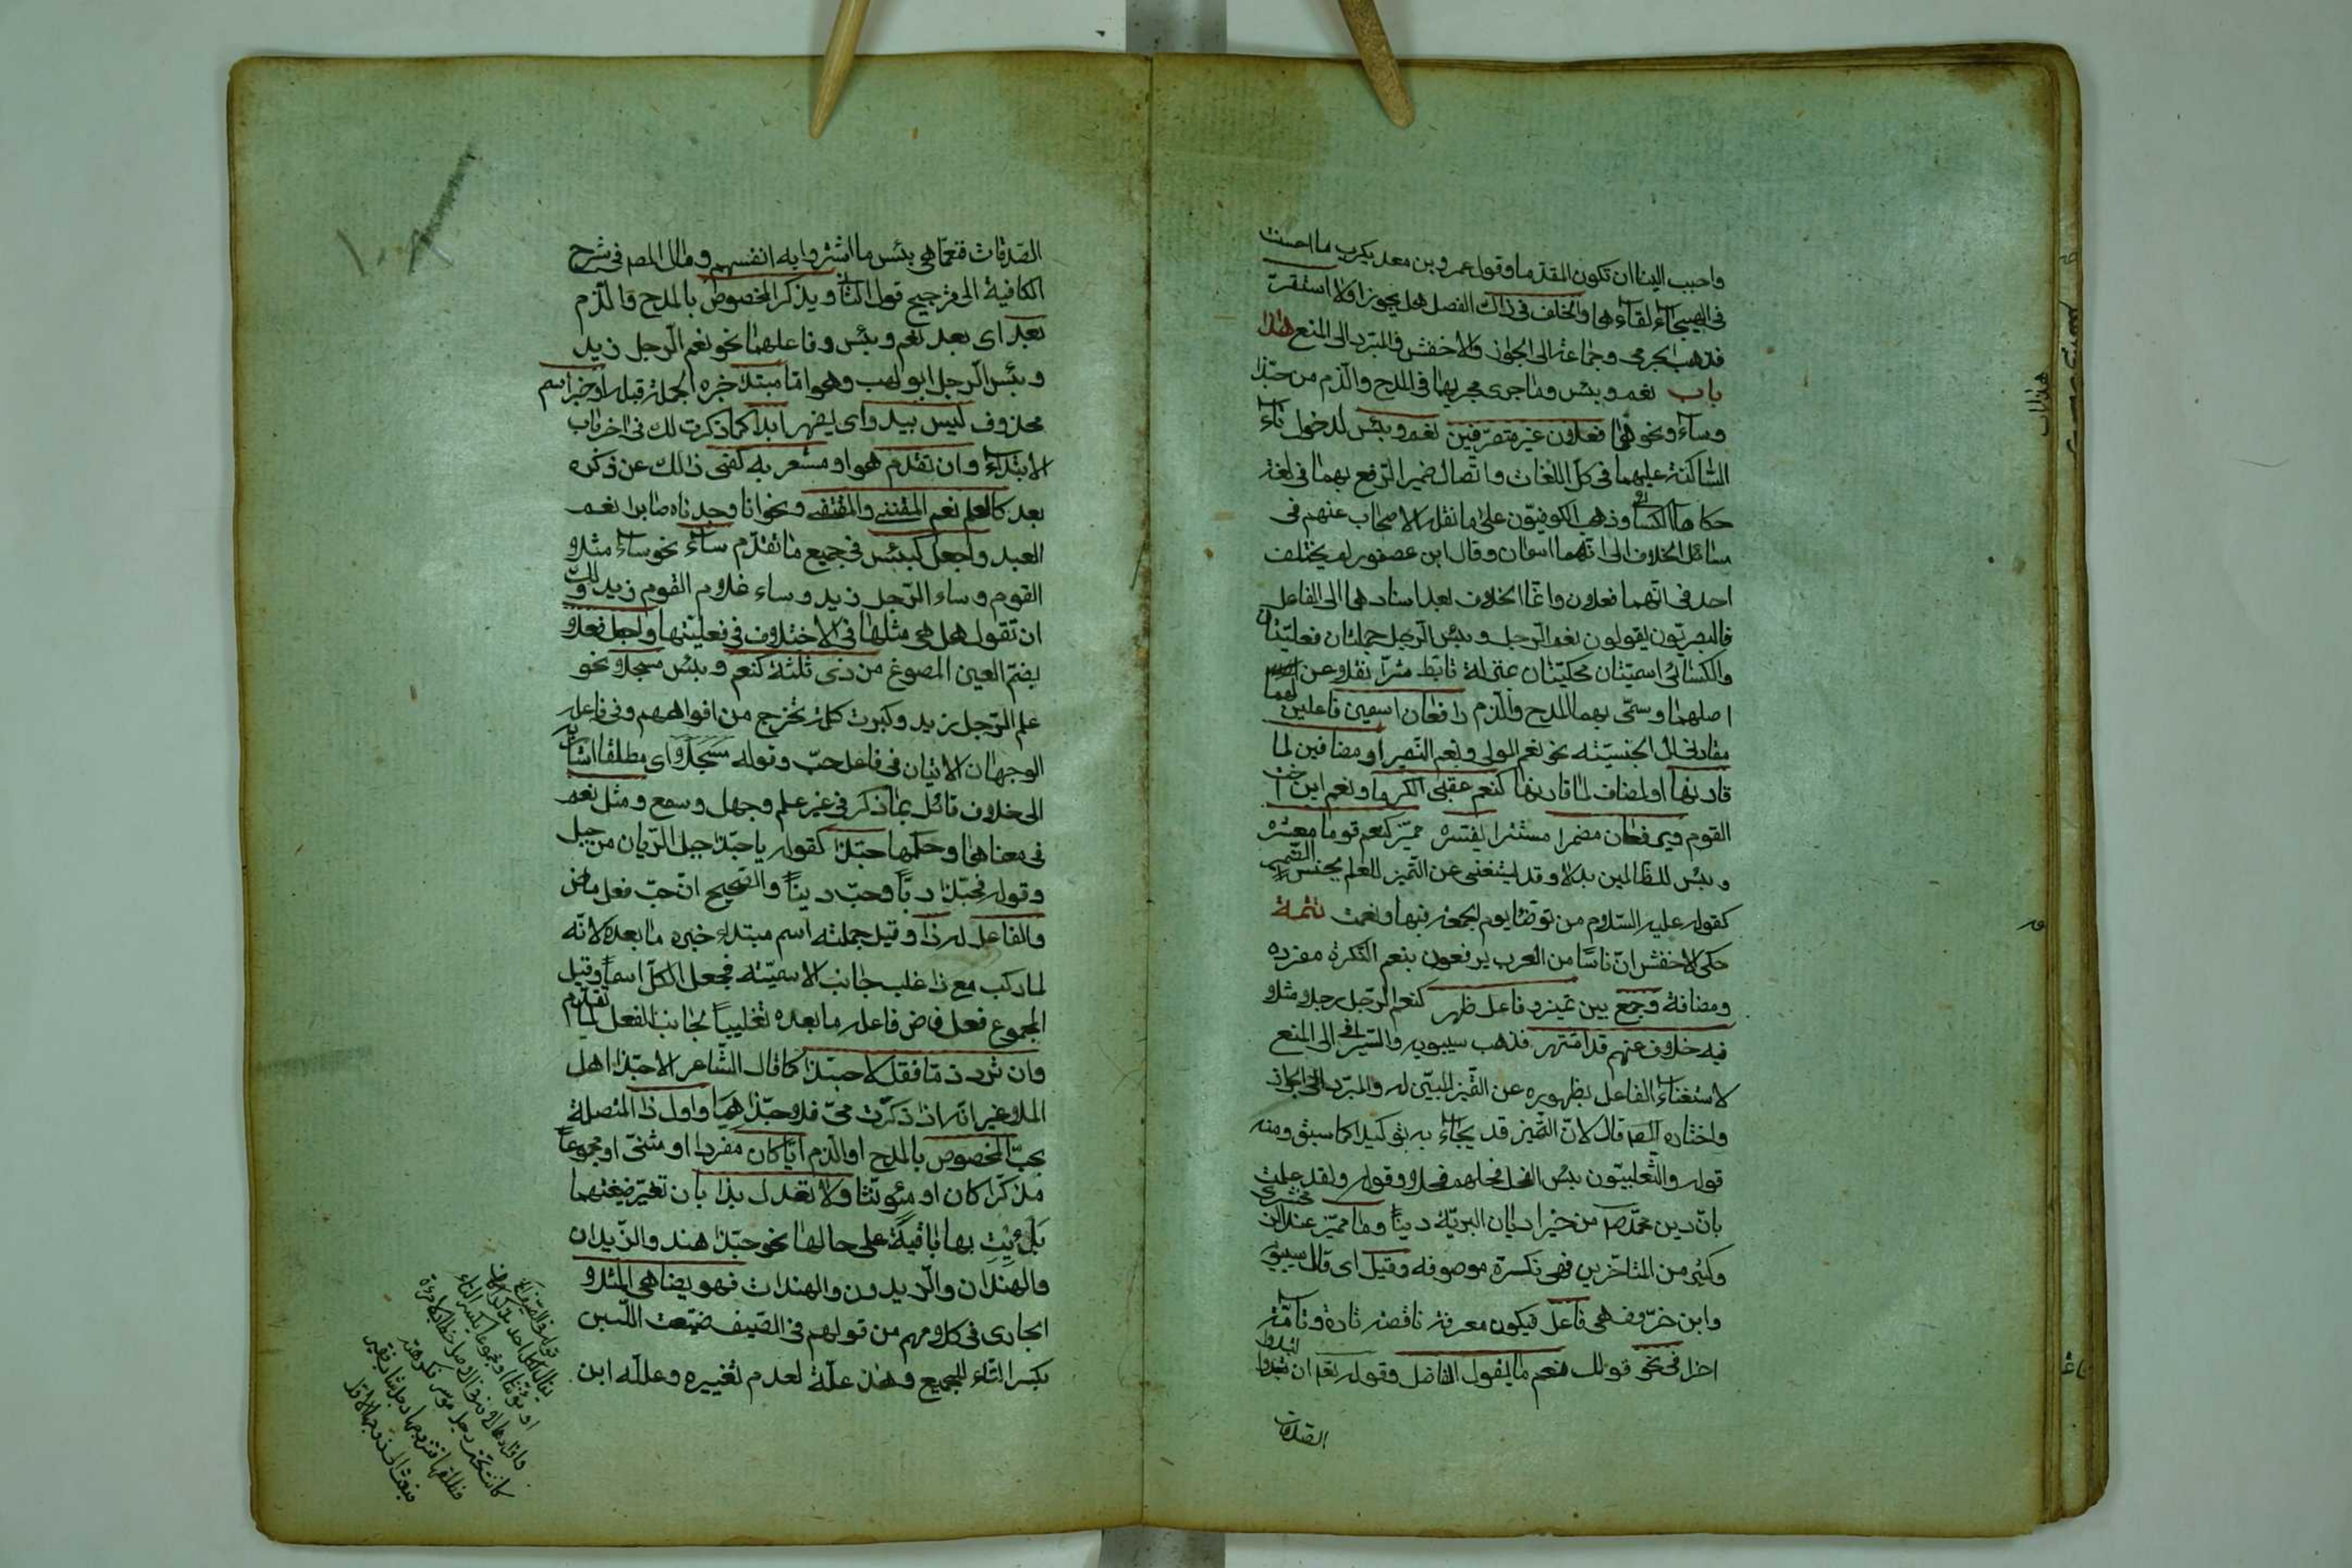 واحبب الينا ان تكون المقدما وقول عمرو بن معديكرب ما احسنت
فى الهيجاء لقاءها والخلف فى ذاك الفصل هل يجوز او لا استقرت
فذهب الجرمى وجماعة الى الجواز والاخفش والمبرد الى المنع هذا
باب نعم وبئس وما جرى مجريهما فى المدح والذم من حبّذا
وساء ونحوهما فعلان غير متصرّفين نعم وبئس لدخول تاء
الساكنة عليهما فى كلّ اللغات واتّصال ضمير الرفع بهما فى لغة
حكاها الكسائى وذهب الكوفيّون على ما نقله الاصحاب عنهم فى
مسائل الخلاف الى انّهما اسمان وقال ابن عصفور لم يختلف
احد فى انّهما فعلان وانّما الخلاف بعد اسنادهما الى الفاعل
فالبصريّون يقولون نعم الرجل وبئس الرجل جملتان فعليّتان
والكسائى اسميّتان محكيّتان بمنزلة تابّط شرّا نقلا عن
اصلهما وسمّى بهما المدح والذم رافعان اسمين فاعلين لهما
مقارنى ال الجنسيّة نحو نعم المولى ونعم النصير او مضافين لما
قارنها او لمضاف لما قارنها كنعم عقبى الكرما ونعم ابن اخت
القوم ويرفعان مضمرا مستترا يفسّره مميّز كنعم قوما معشره
وبئس للظالمين بدلا وقد يستغنى عن التميز للعلم بجنس الضمير
كقوله عليه السلام من توضّا يوم الجمعة فبها ونعمت تتمة
حكى الاخفش انّ ناسًا من العرب يرفعون بنعم النكرة مفردة
ومضافة وجمع بين تميز وفاعل ظهر كنعم الرّجل رجلا مثلا
فيه خلاف عنهم قد اشتهر فذهب سيبويه والسيرافى الى المنع
لاستغناء الفاعل بظهوره عن التّميز المبيّن له والمبرّد الى الجواز
واختاره المصـ قال لانّ التميز قد يجاء به توكيدا كما سبق ومنه
قوله والتغلبيّون بئس الفحل فحلهم فحلا وقوله ولقد علمت
بانّ دين محمّد من خير اديان البريّة دينًا وما مميّز عند الزمخشرى
وكثير من المتاخّرين فهى نكرة موصوفة وقيل اى قال سيبويه
وابن خرّوف هى فاعل فيكون معرفة ناقصة تارة وتامّة
اخرى فى نحو قولك نعم ما يقول الفاضل وقوله تعم ان تبدوا
الصدقات
الصّدقات فنعمّا هى بئس ما اشتروا به انفسهم ومال المصـ فى شرح
الكافية الى ترجيح قول الثانى ويذكر المخصوص بالمدح والذّم
بعد اى بعد نعم وبئس وفاعلهما نحو نعم الرّجل زيد
وبئس الرّجل ابو لهب وهو امّا مبتدا خبره الجملة قبله او خبر اسم
محذوف ليس يبدو اى يظهر ابدا كما ذكرت لك فى اخر باب
الابتداء وان تقدّم هو او مشعر به كفى ذلك عن ذكره
بعد كالعلم نعم المقتنى والمقتفى ونحو انا وجدناه صابرا نعم
العبد واجعل كبئس فى جميع ما تقدّم ساء نحو ساء مثلا
القوم وساء الرّجل زيد وساء غلام القوم زيد ولك
ان تقول هل هى مثلها فى الاختلاف فى فعليّتها واجعل فعلا
بضمّ العين المصوغ من ذى ثلثة كنعم وبئس مسجلا نحو
علم الرّجل زيد وكبرت كلمة تخرج من افواههم وفى فاعله
الوجهان الاتيان فى فاعل حبّ وقوله مسجلا اى مطلقا اشار به
الى خلاف قائل بما ذكر فى غير علم وجهل وسمع ومثل نعم
فى معناها وحكمها حبّذا كقوله يا حبّذا جبل الرّيان من جبل
وقوله فحبّذا ربًّا وحبّ دينًا والصّحيح انّ حبّ فعل ماض
والفاعل له ذا وقيل جملته اسم مبتداء خبره ما بعده لانّه
لما ركّب مع ذا غلب جانب الاسميّة فجعل الكلّ اسماً وقيل
المجموع فعل فاعله ما بعده تغليباً لجانب الفعل لما تقدّم
وان ترد ذمّا فقل لا حبّذا كما قال الشّاعر الا حبّذا اهل
الملا غير انّه اذا ذكرت مىّ فلا حبّذا هيا واول ذا المتصلة
بحبّ المخصوص بالمدح او الذّم ايّا كان مفردا او مثنّى او مجموعاً
مذكّرا كان او مؤنّثا ولا تعدل بذا بان تغيّر صيغتها
بل ائت بها باقيةً على حالها نحو حبّذا هند والزّيدان
والهندان والزّيدون والهندات فهو يضاهى المثلا
الجارى فى كلامهم من قولهم فى الصّيف ضيّعت اللّبن
بكسر التّاء للجميع وهذه علّة لعدم تغييره وعلّله ابن